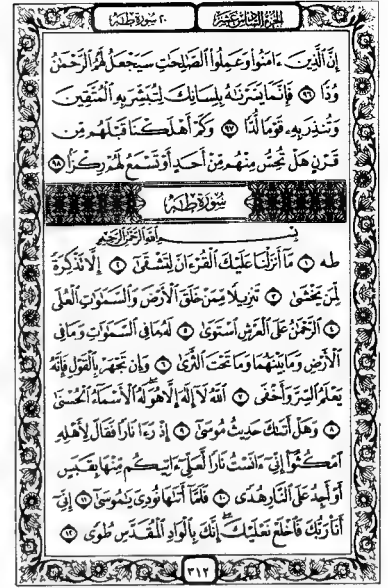 الجزء السادس عشر
٢٠ سورة طه
إِنَّ ٱلَّذِينَ ءَامَنُوا۟ وَعَمِلُوا۟ ٱلصَّٰلِحَٰتِ سَيَجْعَلُ لَهُمُ ٱلرَّحْمَٰنُ
وُدًّا ٩٦ فَإِنَّمَا يَسَّرْنَٰهُ بِلِسَانِكَ لِتُبَشِّرَ بِهِ ٱلْمُتَّقِينَ
وَتُنذِرَ بِهِۦ قَوْمًا لُّدًّا ٩٧ وَكَمْ أَهْلَكْنَا قَبْلَهُم مِّن
قَرْنٍ هَلْ تُحِسُّ مِنْهُم مِّنْ أَحَدٍ أَوْ تَسْمَعُ لَهُمْ رِكْزًۢا ٩٨
سُورَةُ طه
بِسْمِ ٱللَّهِ ٱلرَّحْمَٰنِ ٱلرَّحِيمِ
طه ١ مَآ أَنزَلْنَا عَلَيْكَ ٱلْقُرْءَانَ لِتَشْقَىٰٓ ٢ إِلَّا تَذْكِرَةً
لِّمَن يَخْشَىٰ ٣ تَنزِيلًا مِّمَّنْ خَلَقَ ٱلْأَرْضَ وَٱلسَّمَٰوَٰتِ ٱلْعُلَى
٤ ٱلرَّحْمَٰنُ عَلَى ٱلْعَرْشِ ٱسْتَوَىٰ ٥ لَهُۥ مَا فِى ٱلسَّمَٰوَٰتِ وَمَا فِى
ٱلْأَرْضِ وَمَا بَيْنَهُمَا وَمَا تَحْتَ ٱلثَّرَىٰ ٦ وَإِن تَجْهَرْ بِٱلْقَوْلِ فَإِنَّهُۥ
يَعْلَمُ ٱلسِّرَّ وَأَخْفَى ٧ ٱللَّهُ لَآ إِلَٰهَ إِلَّا هُوَ ۖ لَهُ ٱلْأَسْمَآءُ ٱلْحُسْنَىٰ
٨ وَهَلْ أَتَىٰكَ حَدِيثُ مُوسَىٰٓ ٩ إِذْ رَءَا نَارًا فَقَالَ لِأَهْلِهِ
ٱمْكُثُوٓا۟ إِنِّىٓ ءَانَسْتُ نَارًا لَّعَلِّىٓ ءَاتِيكُم مِّنْهَا بِقَبَسٍ
أَوْ أَجِدُ عَلَى ٱلنَّارِ هُدًى ١٠ فَلَمَّآ أَتَىٰهَا نُودِىَ يَٰمُوسَىٰٓ ١١ إِنِّىٓ
أَنَا۠ رَبُّكَ فَٱخْلَعْ نَعْلَيْكَ ۖ إِنَّكَ بِٱلْوَادِ ٱلْمُقَدَّسِ طُوًى ١٢
٣١٢